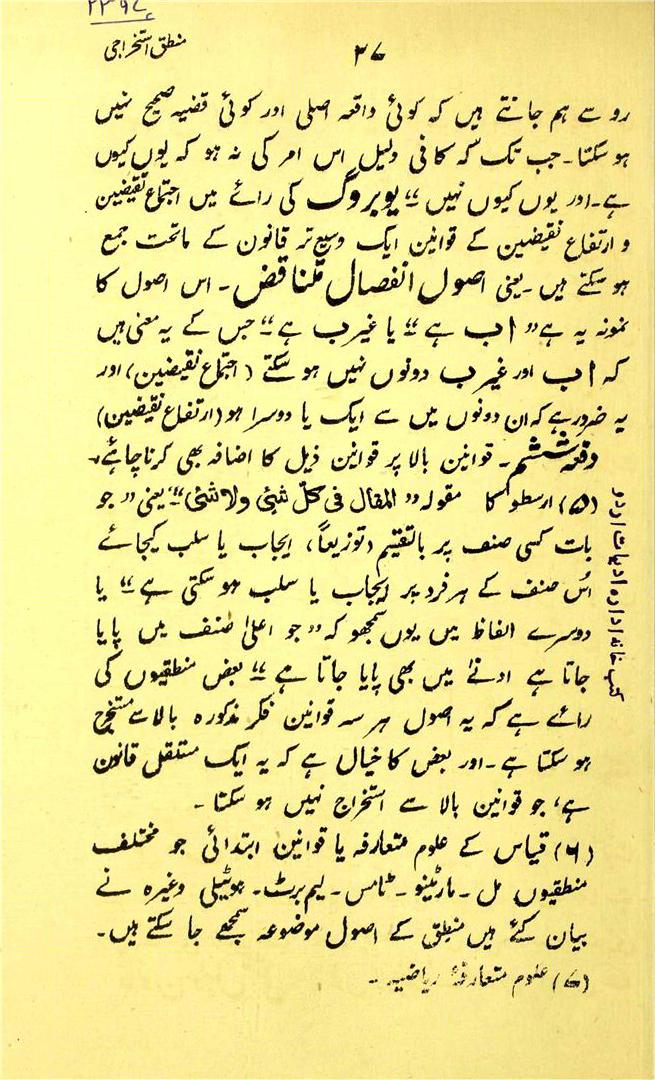 ۲۲۹۷
منطق استخراجی
۲۷
رو سے ہم جانتے ہیں کہ کوئی واقعہ اصلی اور کوئی قضیہ صحیح نہیں
ہو سکتا۔ جب تک کہ کافی دلیل اس امر کی نہ ہو کہ یوں کیوں
ہے۔ اور یوں کیوں نہیں“ یوبروگ کی رائے میں اجتماع نقیضین
و ارتفاع نقیضین کے قوانین ایک وسیع تر قانون کے ماتحت جمع
ہو سکتے ہیں۔ یعنی اصول انفصال متناقض۔ اس اصول کا
نمونہ یہ ہے ”ا ب ہے“ یا غیر ب ہے“ جس کے یہ معنی ہیں
کہ ا ب اور غیر ب دونوں نہیں ہو سکتے (اجتماع نقیضین) اور
یہ ضرور ہے کہ ان دونوں میں سے ایک یا دوسرا ہو (ارتفاع نقیضین)
دفعہ ششم۔ قوانین بالا پر قوانین ذیل کا اضافہ بھی کرنا چاہئے۔
(۵) ارسطو کا مقولہ ”المقال فی کلّ شئی ولا شئی“ یعنی ”جو
بات کسی صنف پر بالتقیم (توزیعاً) ایجاب یا سلب کیجائے
اُس صنف کے ہر فرد پر ایجاب یا سلب ہو سکتی ہے“ یا
دوسرے الفاظ میں یوں سمجھو کہ ”جو اعلیٰ صنف میں پایا
جاتا ہے ادنےٰ میں بھی پایا جاتا ہے“ بعض منطقیوں کی
رائے ہے کہ یہ اصول ہر سہ قوانین فکر مذکورہ بالا سے مستخرج
ہو سکتا ہے۔ اور بعض کا خیال ہے کہ یہ ایک مستقل قانون
ہے، جو قوانین بالا سے استخراج نہیں ہو سکتا۔
(۶) قیاس کے علوم متعارفہ یا قوانین ابتدائی جو مختلف
منطقیوں مل۔ مارٹینو۔ ٹامس۔ لیم برٹ۔ ہوٹیلی وغیرہ نے
بیان کئے ہیں منطق کے اصول موضوعہ سمجھے جا سکتے ہیں۔
(۷) علوم متعارفۂ ریاضیہ۔
کتب خانہ ادارہ ادبیات اردو